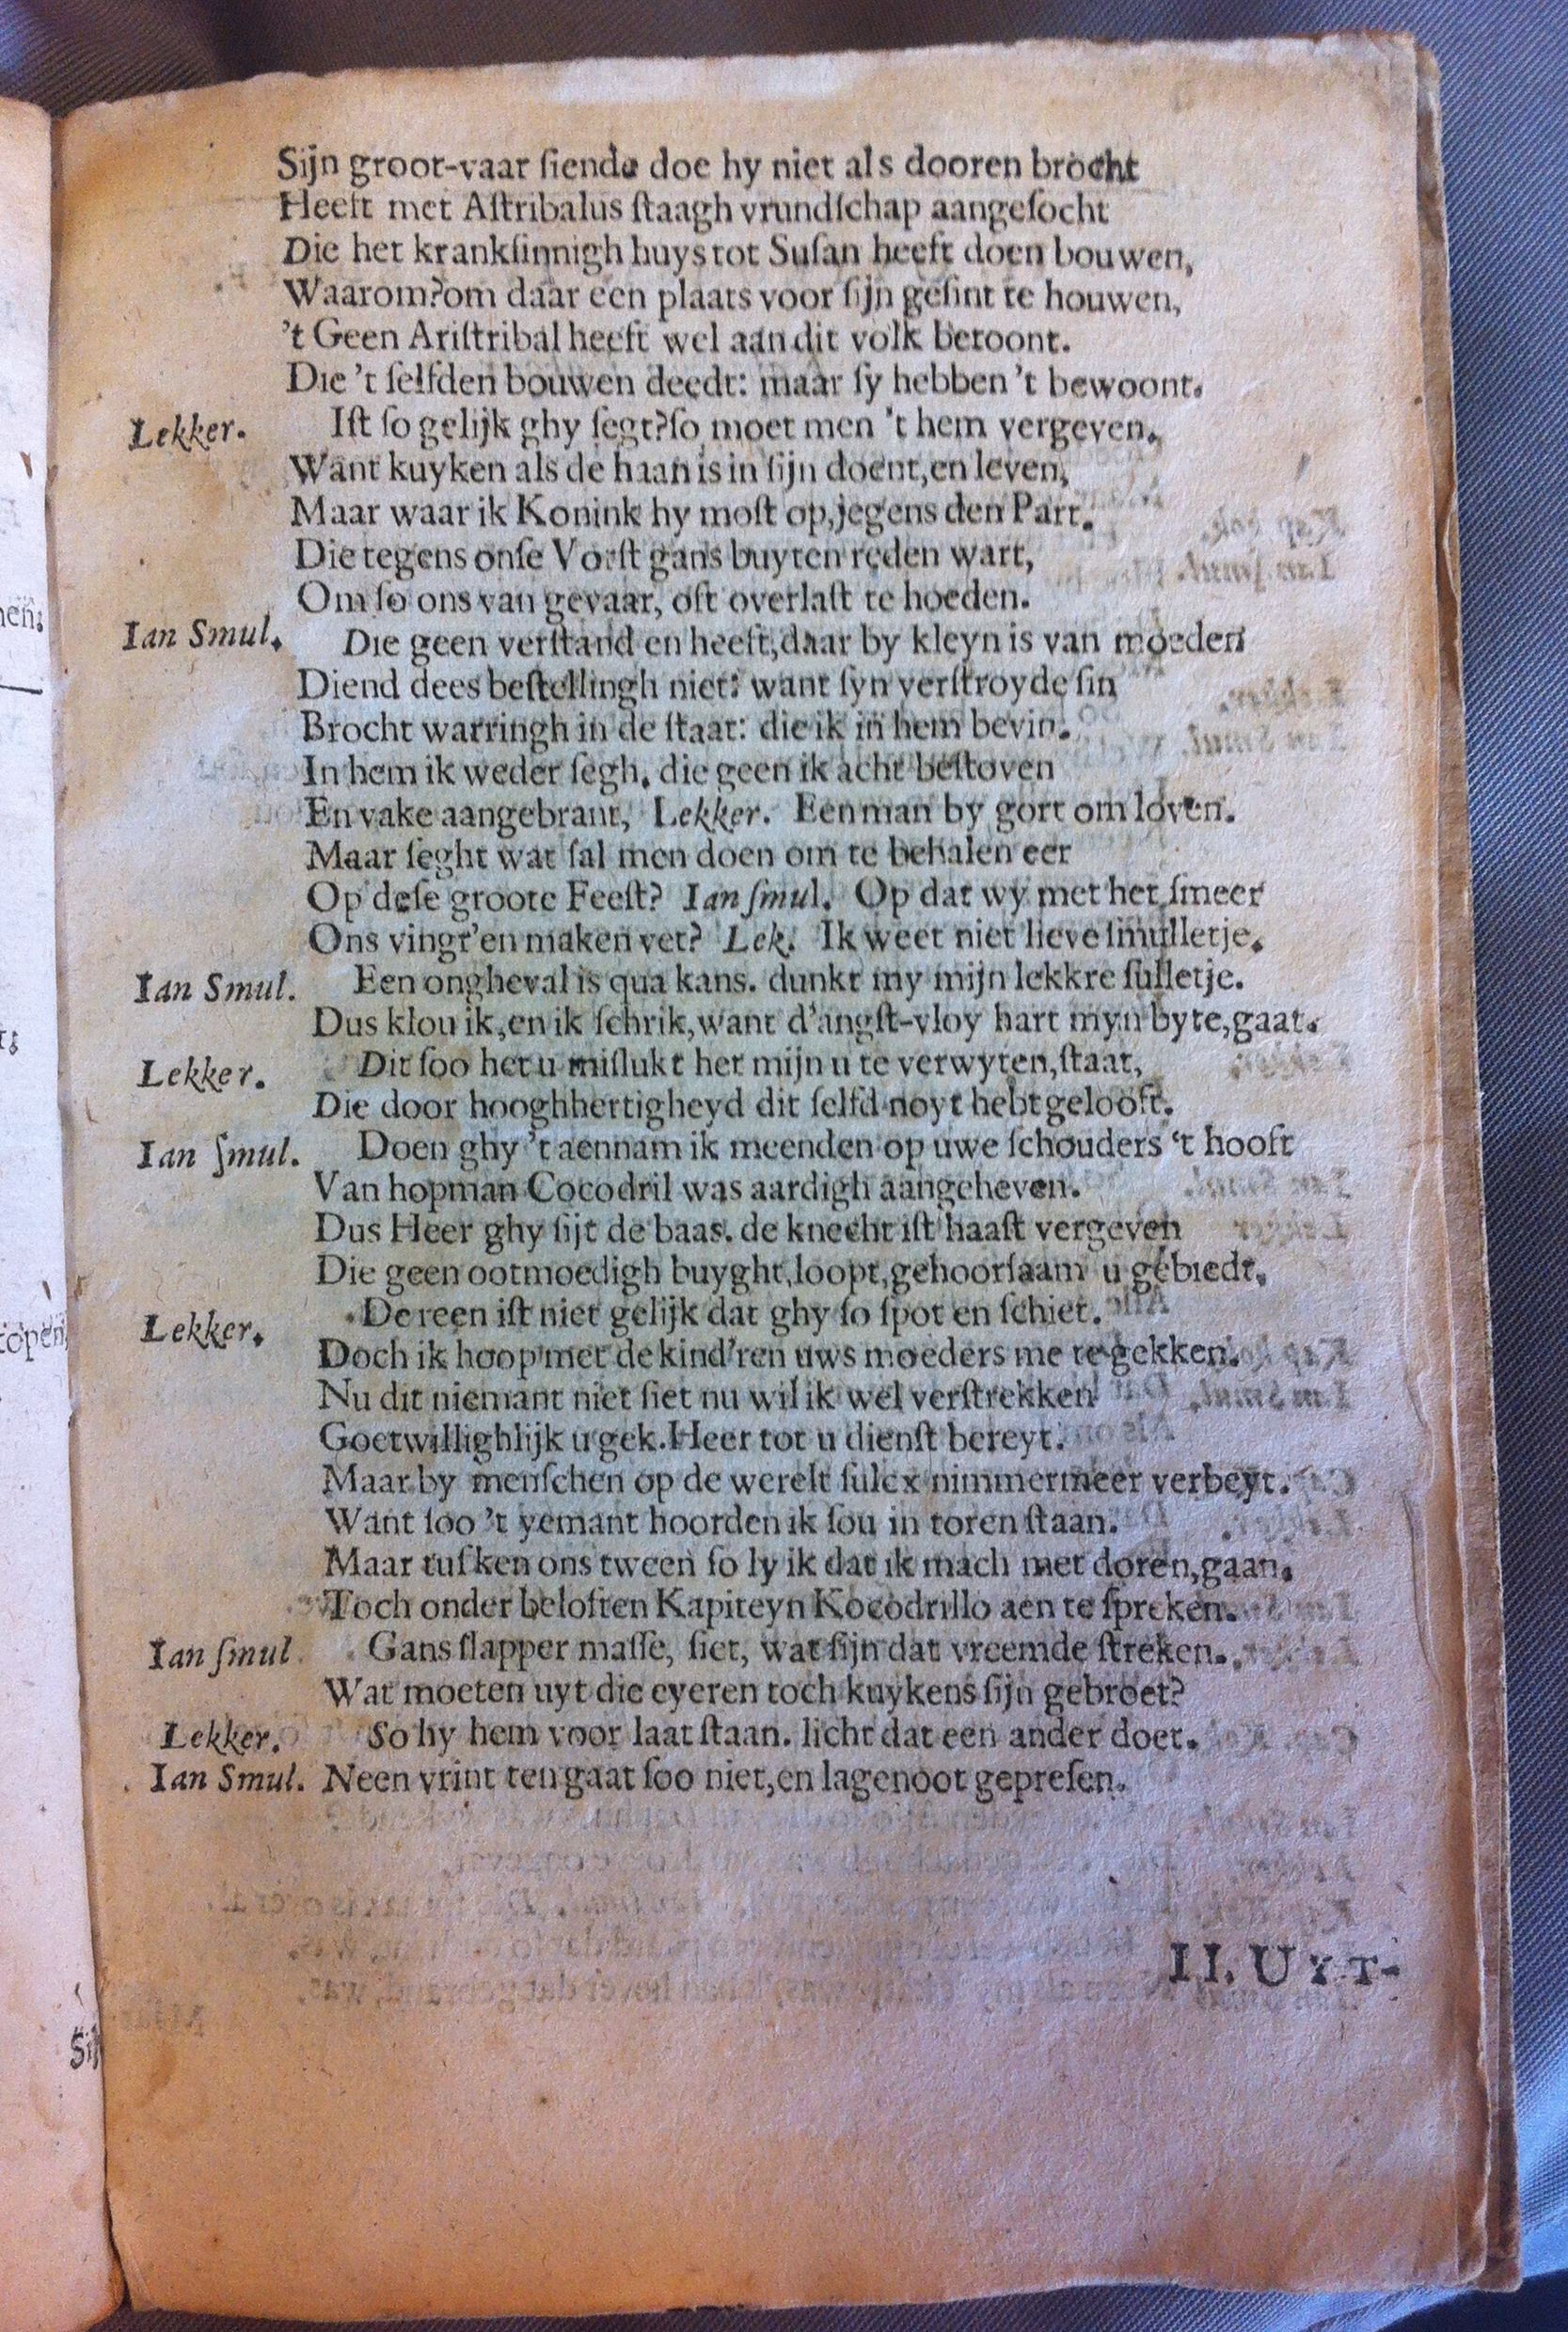 Sijn groot-vaar ſiende doe hy niet als dooren brocht
Heeft met Aſtribalus ſtaagh vrundſchap aangeſocht
Die het krankſinnigh huys tot Suſan heeft doen bouwen,
Waarom?om daar een plaats voor ſijn geſint te houwen,
't Geen Ariſtribal heeft wel aan dit volk betoont.
Die 't ſelfden bouwen deedt: maar ſy hebben 't bewoont.
Lekker. Iſt ſo gelijk ghy ſegt?ſo moet men 't hem vergeven.
Want kuyken als de haan is in ſijn doent,en leven,
Maar waar ik Konink hy moſt op,jegens den Part.
Die tegens onſe Vorſt gans buyten reden wart,
Om ſo ons van gevaar, oft overlaſt te hoeden.
Ian Smul. Die geen verſtand en heeft,daar by kleyn is van moeden
Diend dees beſtellingh niet: want ſyn verſtroyde ſin
Brocht warringh in de ſtaat: die ik in hem bevin.
In hem ik weder ſegh. die geen ik acht beſtoven
En vake aangebrant, Lekker. Een man by gort om loven.
Maar ſeght wat ſal men doen om te behalen eer
Op deſe groote Feeſt? Ian ſmul. Op dat wy met het ſmeer
Ons vingr'en maken vet? Lek. Ik weet niet lieve ſmulletje.
Ian Smul. Een ongheval is qua kans. dunkt my mijn lekkre ſulletje.
Dus klou ik,en ik ſchrik,want d'angſt-vloy hart myn byte,gaat.
Lekker. Dit ſoo het u miſlukt het mijn u te verwyten,ſtaat,
Die door hooghhertigheyd dit ſelfd noyt hebt gelooft.
Ian ſmul. Doen ghy 't aennam ik meenden op uwe ſchouders 't hooft
Van hopman Cocodril was aardigh aangeheven.
Dus Heer ghy ſijt de baas. de knecht iſt haaſt vergeven
Die geen ootmoedigh buyght,loopt,gehoorſaam u gebiedt.
Lekker. De reen iſt niet gelijk dat ghy ſo ſpot en ſchiet.
Doch ik hoop met de kind'ren uws moeders me te gekken.
Nu dit niemant niet ſiet nu wil ik wel verſtrekken
Goetwillighlijk u gek.Heer tot u dienſt bereyt.
Maar by menſchen op de werelt ſulcx nimmermeer verbeyt.
Want ſoo 't yemant hoorden ik ſou in toren ſtaan.
Maar tuſken ons tween ſo ly ik dat ik mach met doren,gaan.
Toch onder beloften Kapiteyn Kocodrillo aen te ſpreken.
Ian ſmul. Gans ſlapper maſſe, ſiet, wat ſijn dat vreemde ſtreken.
Wat moeten uyt die eyeren toch kuykens ſijn gebroet?
Lekker. So hy hem voor laat ſtaan. licht dat een ander doet.
Ian Smul. Neen vrint ten gaat ſoo niet,en lagenoot gepreſen.
II. UYT-